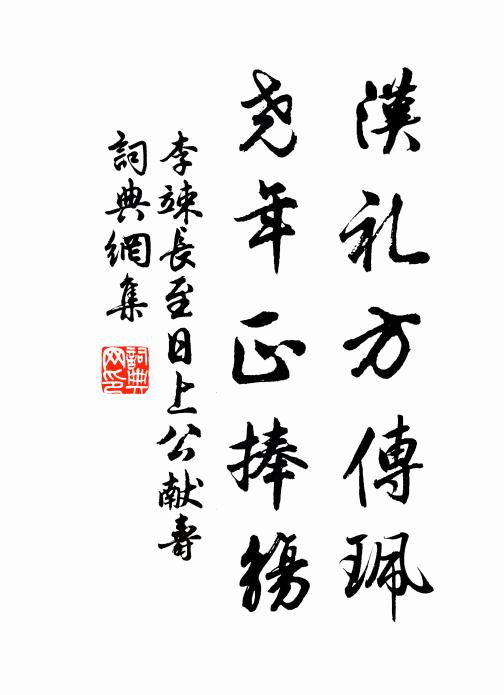 漢礼方傳珮
尭年正捧觴
李竦長至日上公献壽
詞典網集
詞典网印